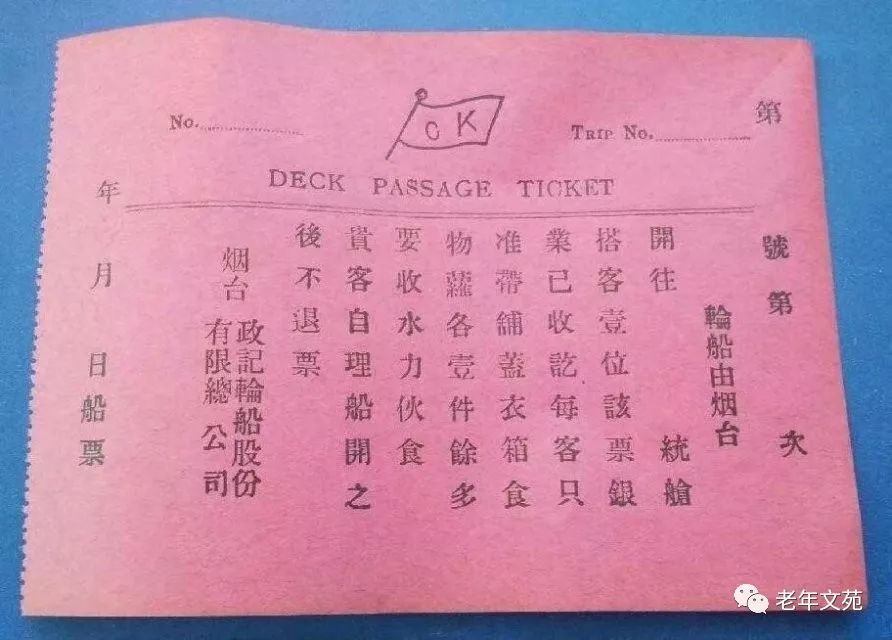 No.
C K
TRIP No.
DECK PASSAGE TICKET
第
號第 次
輪船由烟台
開往 統艙
搭客壹位該票銀
業已收訖每客只
准帶舖蓋衣箱食
物蘿各壹件餘多
要收水力伙食
貴客自理船開之
後不退票
烟台 政記輪船股份
有限總公司
年月日船票
老年文苑